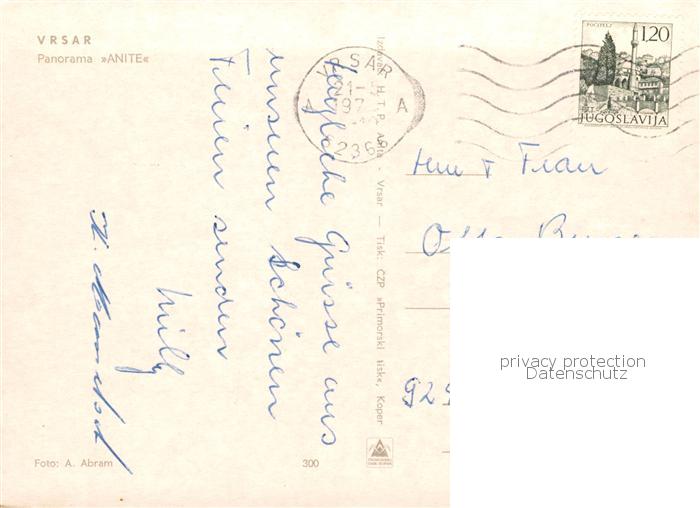 VRSAR
Panorama »ANITE«
Herzliche Grüsse aus
unseren schönen
Ferien senden
Willy
Izdavač: H. T. P. Anita - Vrsar — Tisk: ČZP »Primorski tisk«, Koper
VRSAR
21-
197
A A
POČITELJ
1,20
JUGOSLAVIJA
Herrn + Frau
Otto
925
privacy protection
Datenschutz
Foto: A. Abram
300